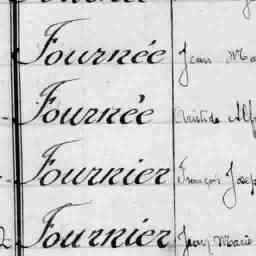 Fournée Jean Ma
Fournée Aristide Alf
Fournier François Josep
Fournier Jean Marie